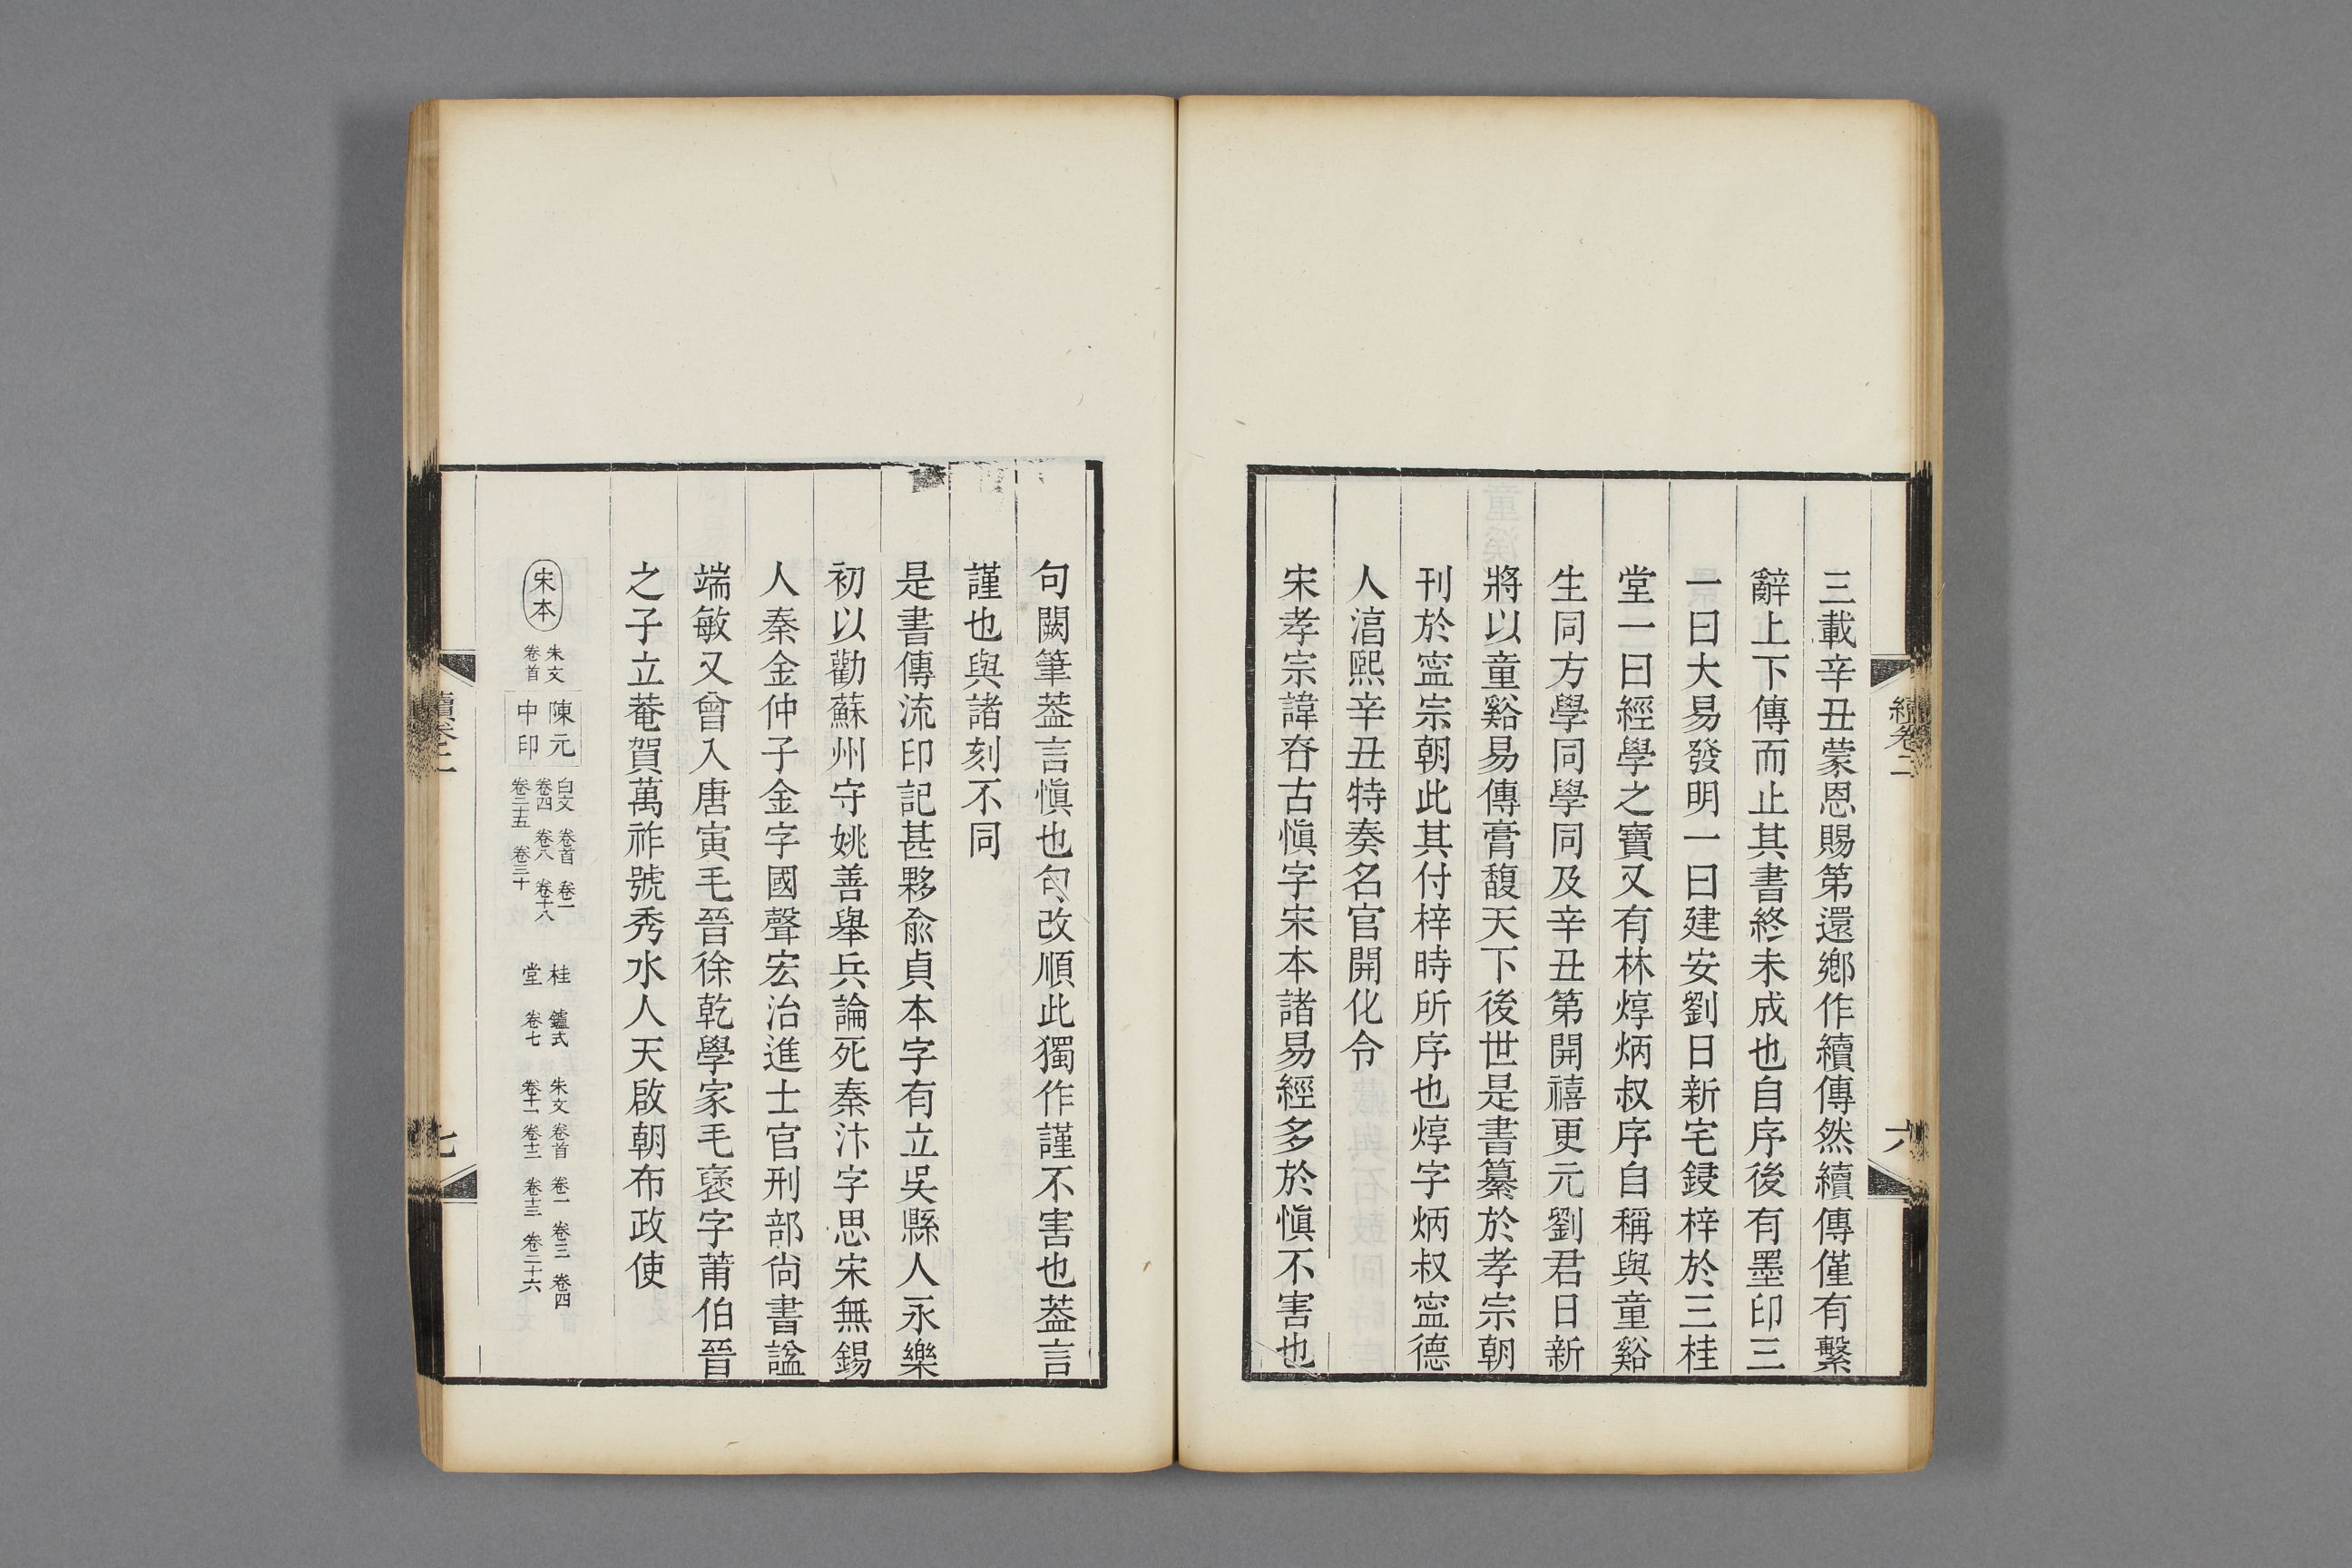 三載辛丑蒙恩賜第還鄉作續傳然續傳僅有繫
辭上下傳而止其書終未成也自序後有墨印三
一曰大易發明一曰建安劉日新宅鋟梓於三桂
堂一曰經學之寶又有林焞炳叔序自稱與童谿
生同方學同學同及辛丑第開禧更元劉君日新
將以童谿易傳膏馥天下後世是書纂於孝宗朝
刊於寍宗朝此其付梓時所序也焞字炳叔寍德
人湻熙辛丑特奏名官開化令
宋孝宗諱昚古愼字宋本諸易經多於愼不害也
續卷二
六
句闕筆葢言愼也句改順此獨作謹不害也葢言
謹也與諸刻不同
是書傳流印記甚夥兪貞本字有立吳縣人永樂
初以勸蘇州守姚善舉兵論死秦汴字思宋無錫
人秦金仲子金字國聲宏治進士官刑部尙書諡
端敏又曾入唐寅毛晉徐乾學家毛褒字莆伯晉
之子立菴賀萬祚號秀水人天啟朝布政使
宋本 朱文 卷首 陳元中印 白文 卷首 卷一 卷四 卷八 卷十八 卷二十五 卷三十 桂堂 鑪式 卷七 朱文 卷首 卷一 卷三 卷四 卷十一 卷十二 卷十三 卷二十六
續卷二
七